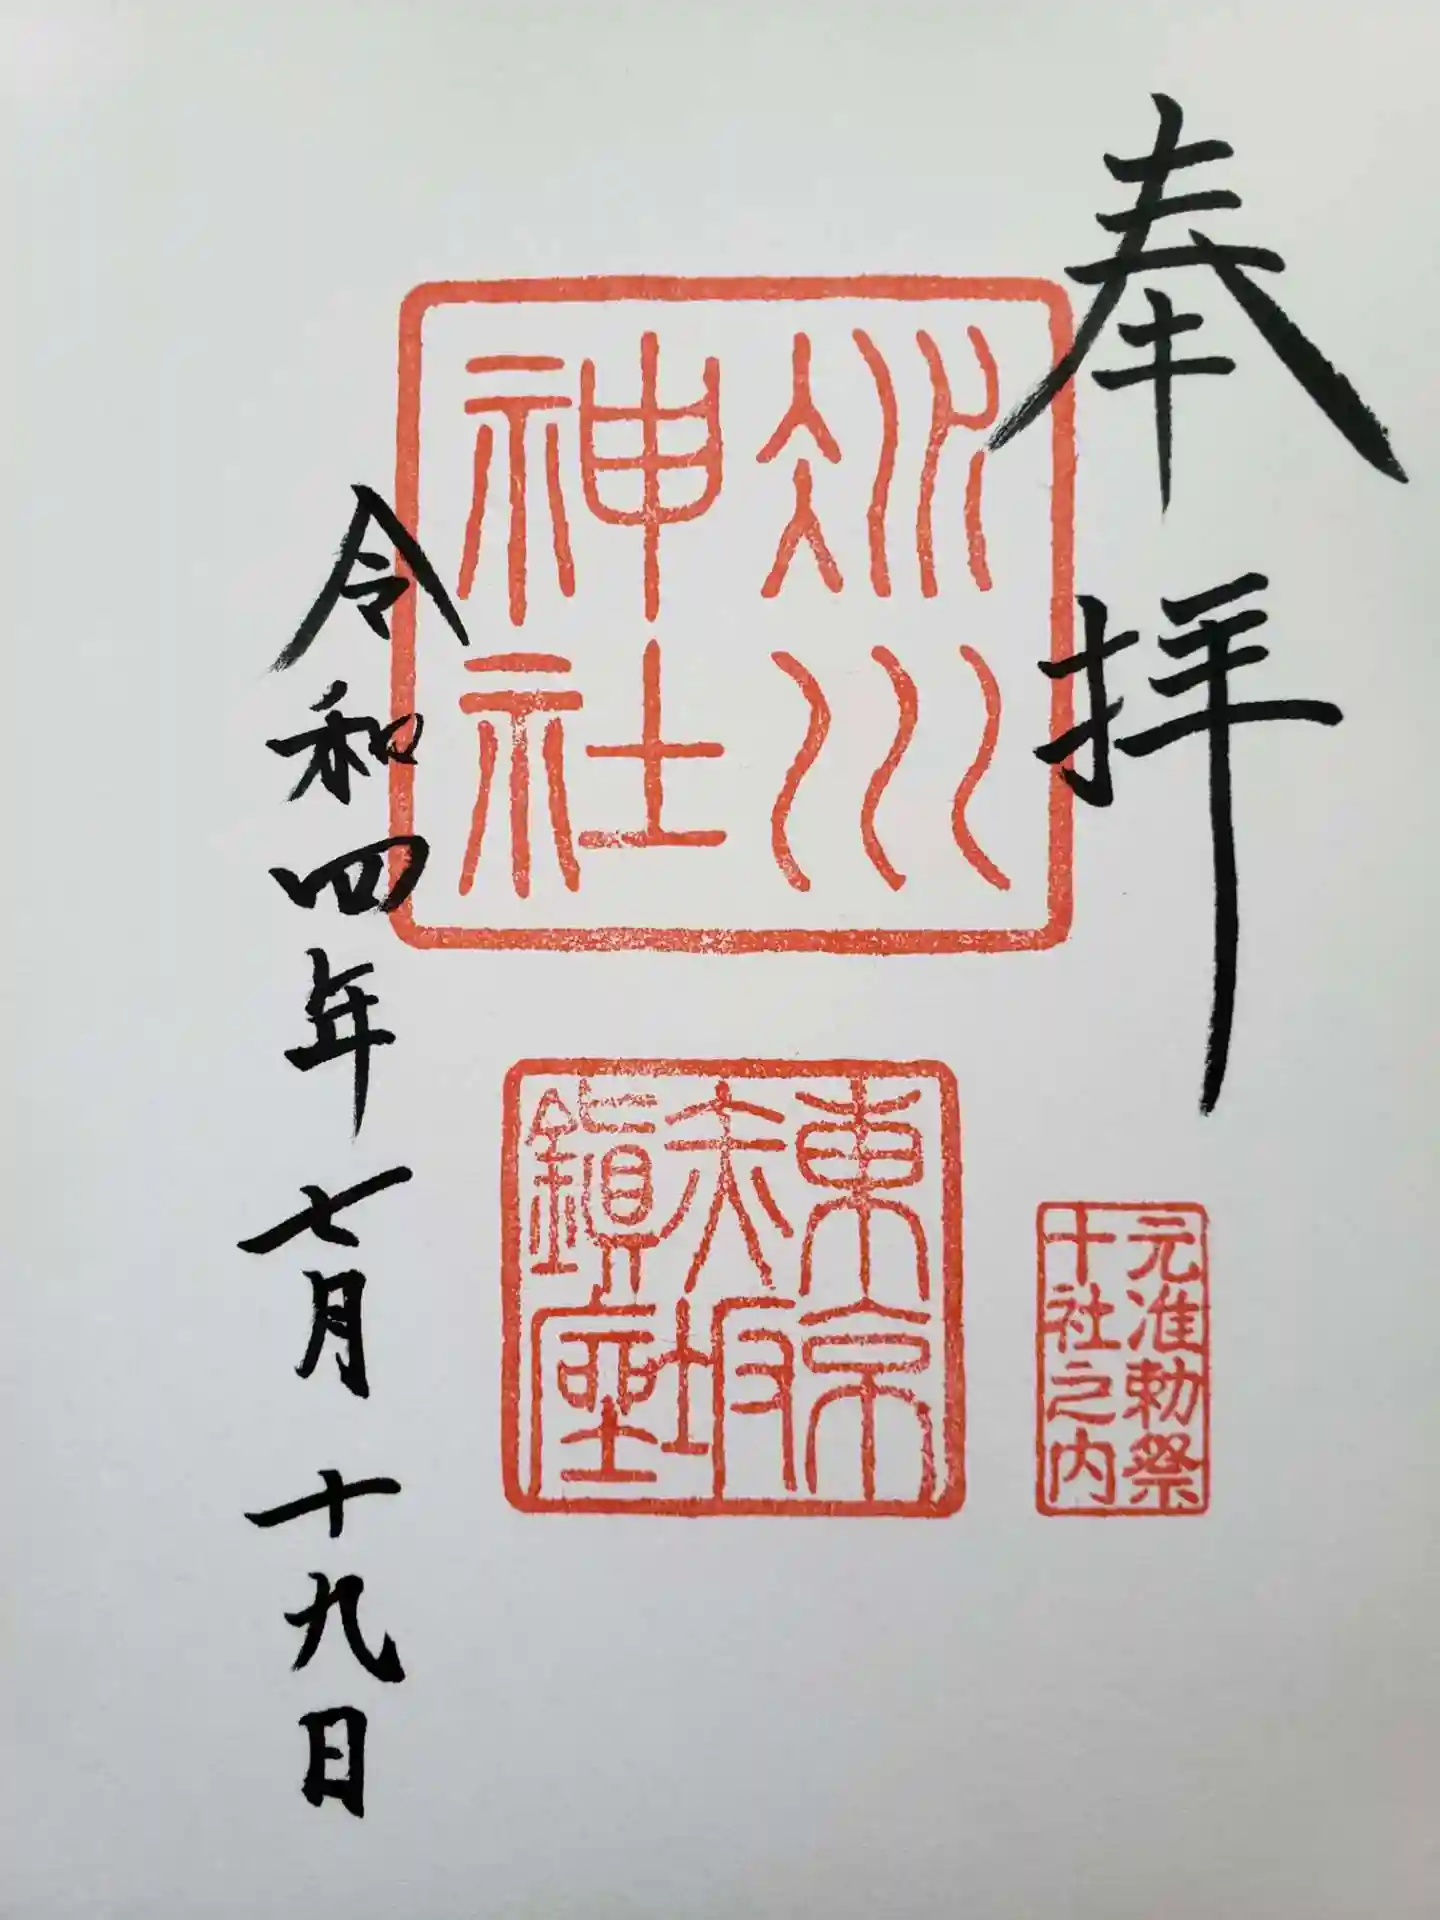 奉拝
元准勅祭
十社之内
冰川
神社
東京
赤坂
鎮座
令和四年七月十九日